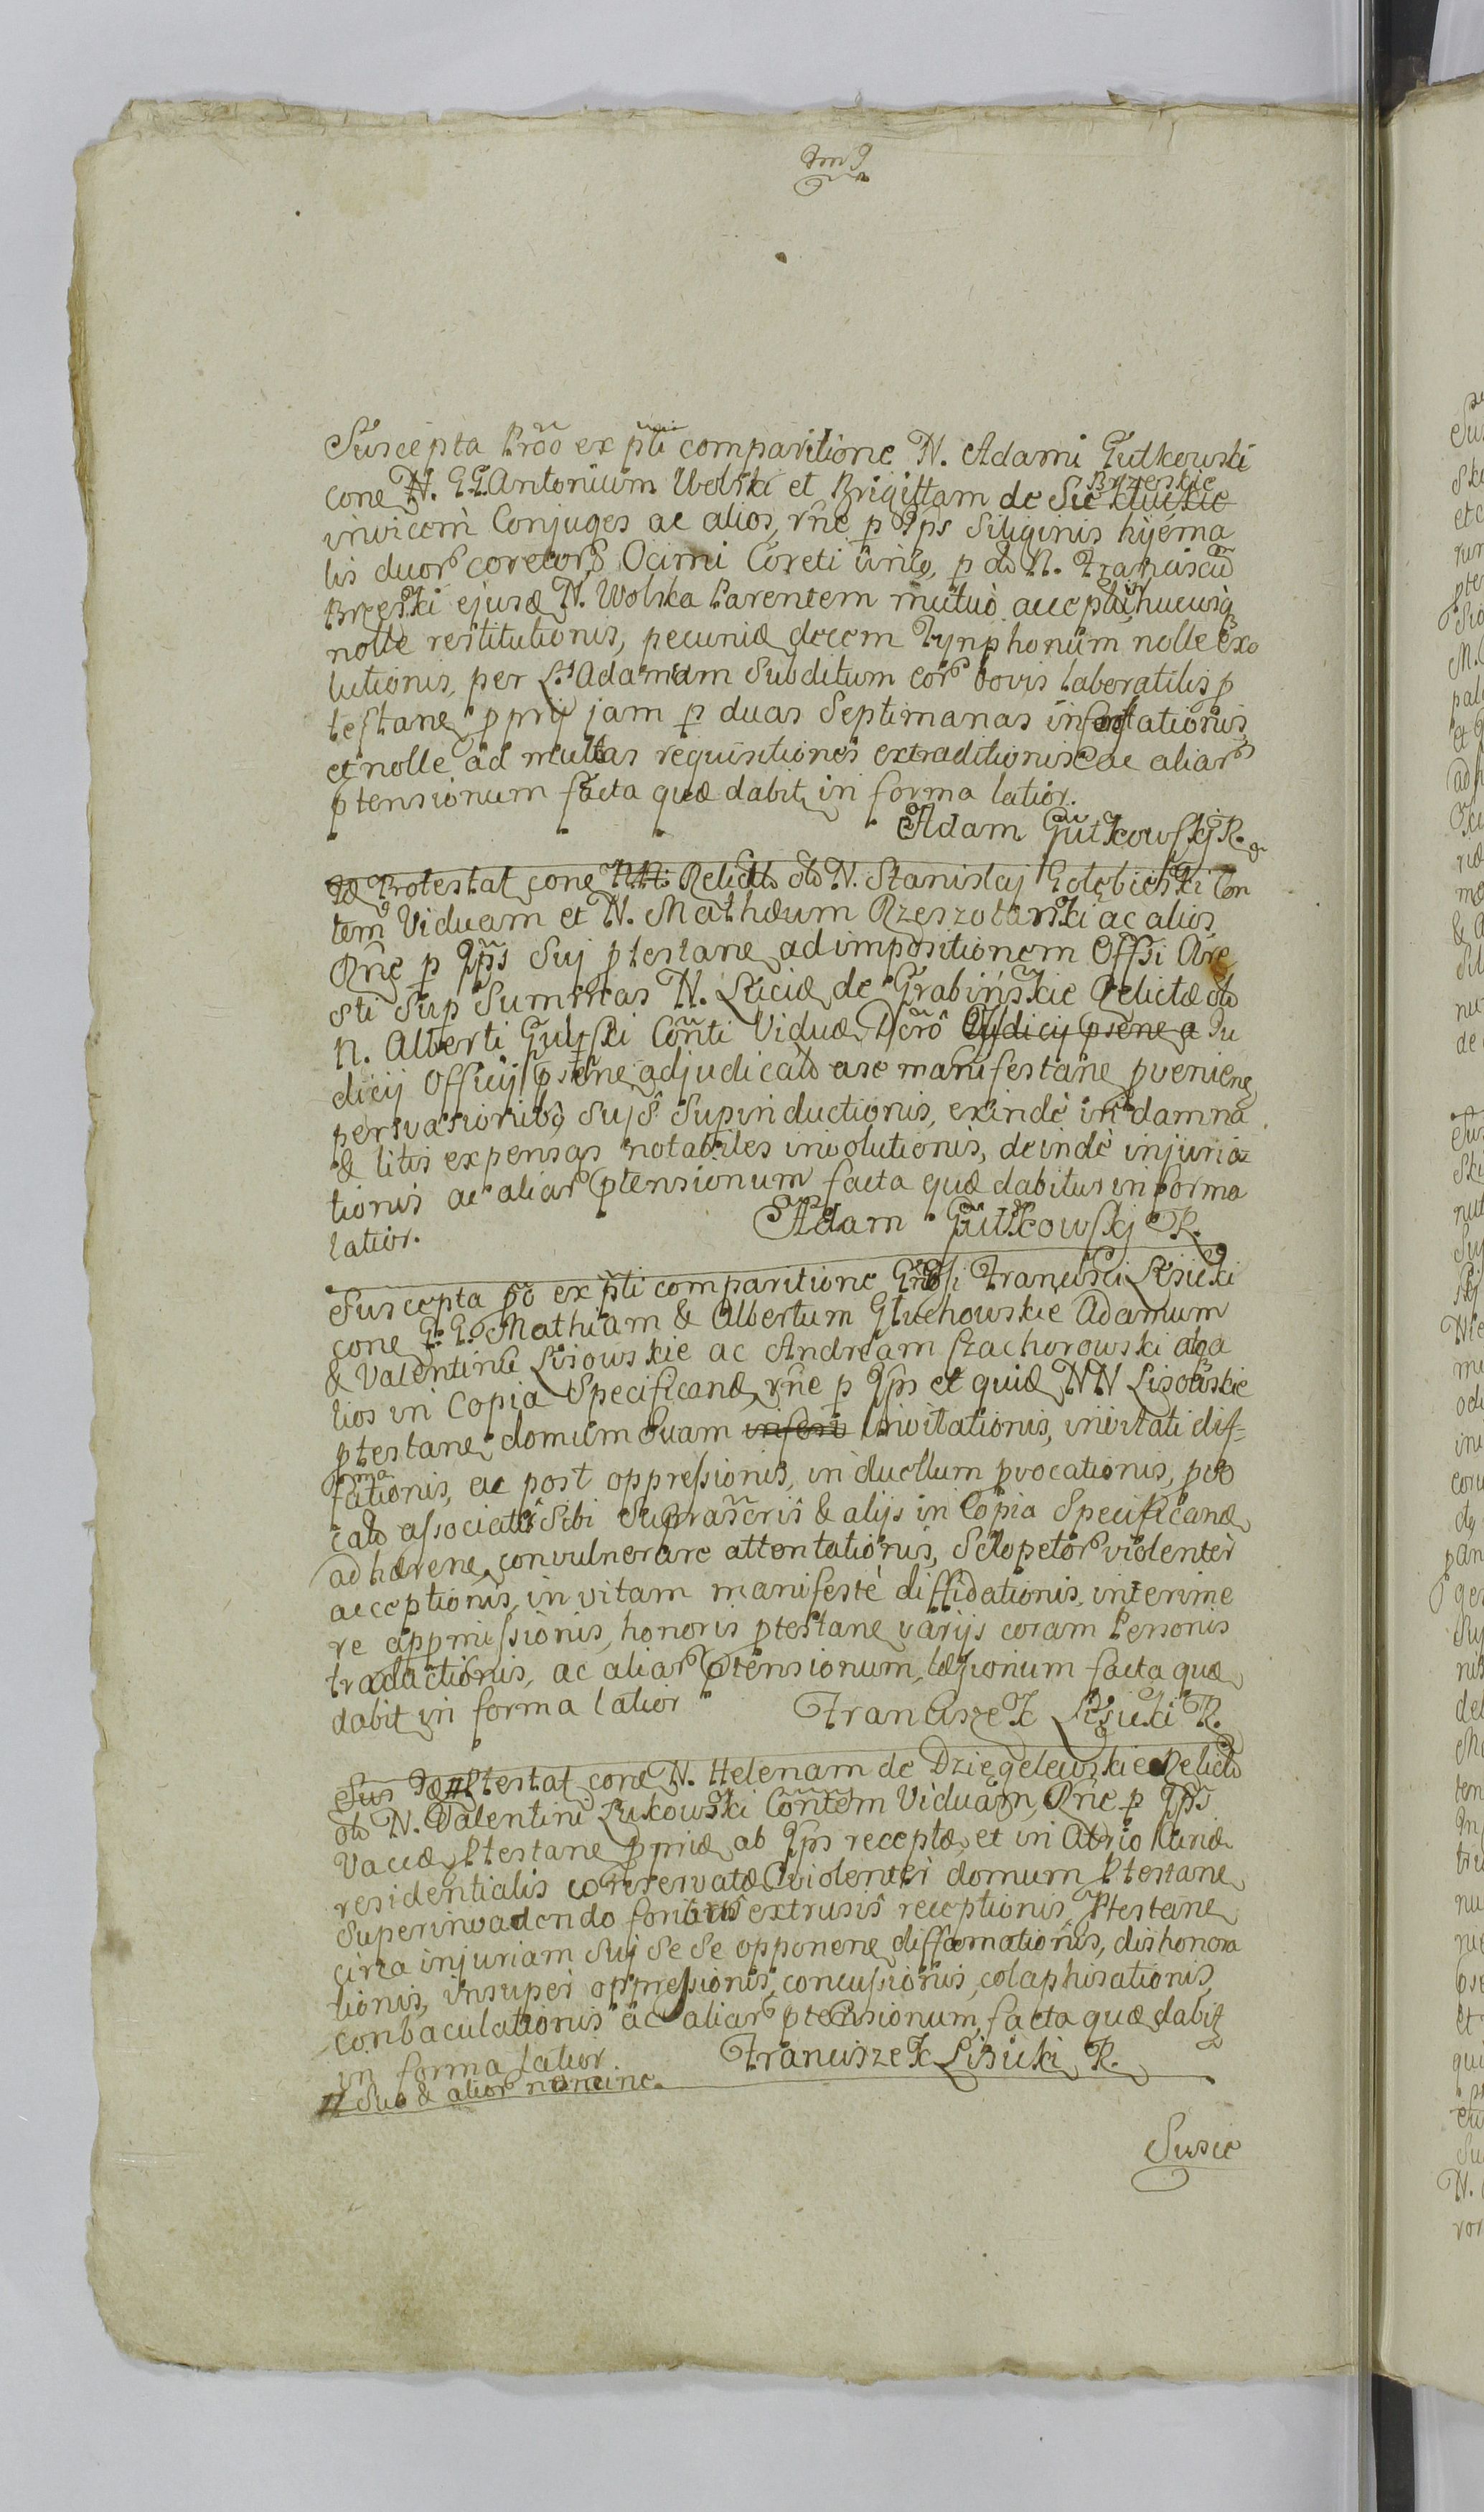 Suscepta Prõo ex p̃ti comparitione N. Adami Gutkowski
cone N. G G. Antonium Wolski et Brigittam de Brzeskie
invicem Conjuges ac alios, rñe p Ips Siliginis hyema
lis duor coretor, Ocimi Coreti unig, p do N. Franciscũ
Brzeski ejusd N. Wolska Parentem mutuò accepta, hucusq
nolle restitutionis, pecuniæ decem Tynphonum nolle Exo
lutionis, per L. Adamum Subditum cor bovis laboratilis p
testane pprij jam p duas Septimanas
et nolle ad multas requisitiones extraditionis ac aliar
ptensionum facta quæ dabit in forma latior.
Adam Gutkowskj R.
Id Protestat cone Relicta olo N. Stanislaj Gołębieski Con
tem Viduam et N. Mathæum Rzeszotarski ac alios
Rñe p Ips Suj ptestane ad impositionem Offi Are
sti Sup Summas N. Luciæ de Grabińskie Relictæ olo
N. Alberti Gulski Cõnti Viduæ, Dcrõ Ju
dicij Officij pstene adjudicato asc manifestane pveniene
persvasionibg Sujs Supinductionis, exindè in damna
& litis expensas notabiles involutionis, deindè injuria
tionis ac aliar ptensionum facta quæ dabitur in forma
latior. Adam Gutkowskj R.
Suscepta põ ex p̃ti comparitione Gñosi Francisci Lisicki
cone G. G. Mathiam & Albertum Głuchowskie Adamum
& Valentinũ Lisowskie ac Andream Czachorowski a
lios in Copia Specificand, rñe p Ips et quid NN Lisowskie
ptestane domum Suam Invitationis, invitati dif=
famationis, ac post oppressionis, in duellum pvocationis, pvo
cato associatis Sibi Suprascris & alijs in Copia Specificand
adhærene convulnerare attentationis, Sclopetor violenter
acceptionis, in vitam manifestè diffidationis, interime
re appmissionis, honoris ptestane varijs coram Personis
traductionis, ac aliar ptensionum, læsionum facta quæ
dabit in forma latior Franciszek Lisicki R.
Id # Ptestat cone N. Helenam de Dzięgelewskie Relicta
olo N. Valentini Łukowski Cõntem Viduam, Rñe p Ips
Vaccæ Ptestane ppriæ ab Ips receptæ et in Atrio Curiæ
residentialis conservatæ violenter domum Ptestane
Superinvadendo foribus extrusis receptionis, Ptestane
circa injuriam Suj Se Se opponene diffamationis, dishonora
tionis, insuper oppressionis, concussionis, colaphisationis,
conbaculationis ac aliar ptensionum, facta quæ dabit
in forma latior. Franciszek Lisicki R.
# Suo & alior nomine.
Susce